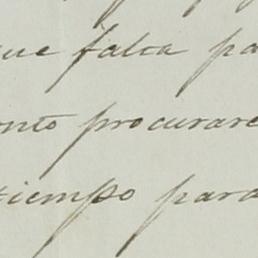 que falta pa
onto procurare
tiempo para